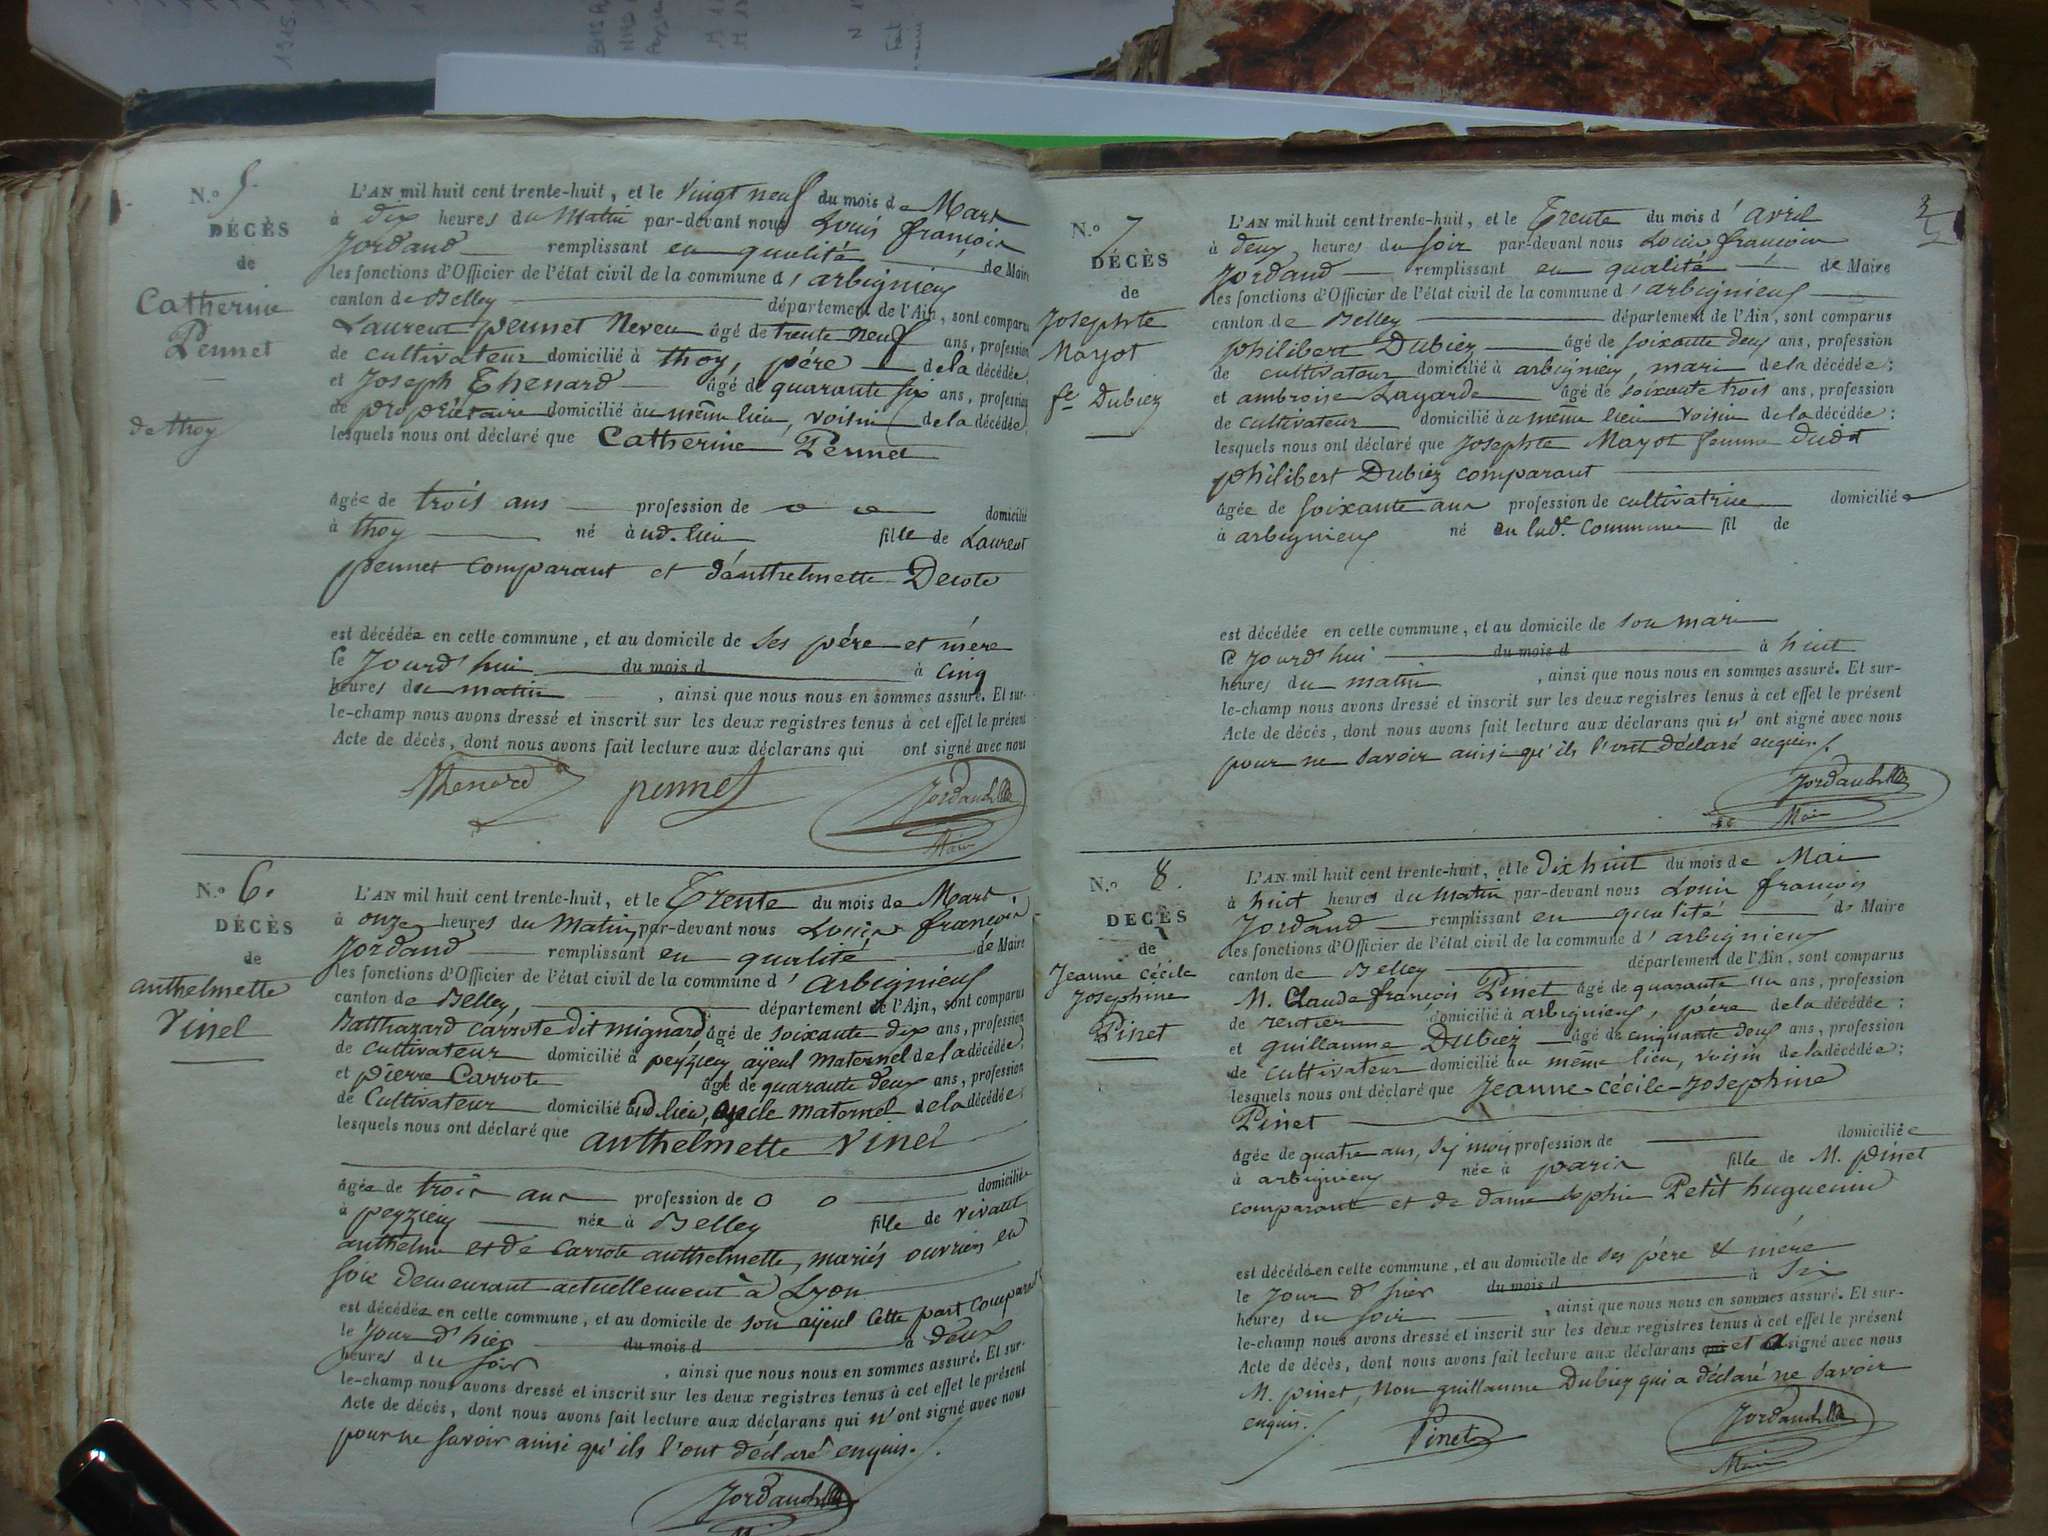 N.º 5.
DÉCÈS
de
Catherine
Pennet
de thoy
L'AN mil huit cent trente-huit, et le Vingt neuf du mois de Mars
à dix heures du Matin par-devant nous Louis françois
Jordand remplissant en qualité de Maire
les fonctions d'Officier de l'état civil de la commune d'arbignieux
canton de Belley département de l'Ain, sont comparus
Laurent pennet Neveu âgé de trente neuf ans, profession
de cultivateur domicilié à thoy, pére de la décédée,
et Joseph Thenard âgé de quarante six ans, profession
de propriétaire domicilié au même lieu, voisin de la décédée,
lesquels nous ont déclaré que Catherine Pennet
âgée de trois ans profession de domicilié
à thoy né à ud. lieu fille de Laurent
pennet comparant et d'anthelmette Decote
est décédée en cette commune, et au domicile de ses pére et mére
le Jourd'hui du mois d à cinq
heures du matin, ainsi que nous nous en sommes assuré. Et sur-
le-champ nous avons dressé et inscrit sur les deux registres tenus à cet effet le présent
Acte de décès, dont nous avons fait lecture aux déclarans qui ont signé avec nous
Thenard pennet Jordand
Maire
N.º 6.
DÉCÈS
de
anthelmette
Vinel
L'AN mil huit cent trente-huit, et le Trente du mois de Mars
à onze heures du Matin, par-devant nous Louis françois
Jordand remplissant en qualité de Maire
les fonctions d'Officier de l'état civil de la commune d'Arbignieux
canton de Belley, département de l'Ain, sont comparus
Balthazard Carrote dit mignard âgé de soixante dix ans, profession
de cultivateur domicilié à peyzieu ayeul maternel de la décédée,
et pierre Carrote âgé de quarante deux ans, profession
de Cultivateur domicilié aud. lieu, oncle maternel de la décédée,
lesquels nous ont déclaré que anthelmette Vinel
âgée de trois ans profession de o o domiciliée
à peyzieu née à Belley fille de vivant
anthelme et de Carrote anthelmette, mariés ouvriers en
soie demeurant actuellement à Lyon
est décédée en cette commune, et au domicile de son ayeul cette part comparant
le Jour d'hier du mois d à deux
heures du soir, ainsi que nous nous en sommes assuré. Et sur-
le-champ nous avons dressé et inscrit sur les deux registres tenus à cet effet le présent
Acte de décès, dont nous avons fait lecture aux déclarans qui n'ont signé avec nous
pour ne savoir ainsi qu'ils l'ont déclaré enquis.
Jordand
N.º 7
DÉCÈS
de
Josephte
Mayot
fe Dubiez
L'AN mil huit cent trente-huit, et le Trente du mois d'avril
à deux heures du soir par-devant nous Louis françois
Jordand remplissant en qualité de Maire
les fonctions d'Officier de l'état civil de la commune d'arbignieux
canton de Belley département de l'Ain, sont comparus
philibert Dubiez âgé de soixante deux ans, profession
de cultivateur domicilié à arbignieu, mari de la décédée;
et ambroise Lagarde âgé de soixante trois ans, profession
de cultivateur domicilié au même lieu voisin de la décédée;
lesquels nous ont déclaré que Josephte Mayot femme dudit
philibert Dubiez comparant
âgée de soixante ans profession de cultivatrice domiciliée
à arbignieux né en lad.e commune fil de
est décédée en cette commune, et au domicile de son mari
le Jourd'hui du mois d à huit
heures du matin, ainsi que nous nous en sommes assuré. Et sur-
le-champ nous avons dressé et inscrit sur les deux registres tenus à cet effet le présent
Acte de décès, dont nous avons fait lecture aux déclarans qui n'ont signé avec nous
pour ne savoir ainsi qu'ils l'ont déclaré enquis.
Jordand
Maire
N.º 8.
DÉCÈS
de
Jeanne Cécile
Josephine
Pinet
L'AN mil huit cent trente-huit, et le dix huit du mois de Mai
à huit heures du Matin par-devant nous Louis françois
Jordand remplissant en qualité de Maire
les fonctions d'Officier de l'état civil de la commune d'arbignieux
canton de Belley département de l'Ain, sont comparus
M. Claude françois Pinet âgé de quarante un ans, profession
de rentier domicilié à arbignieux, pére de la décédée;
et guillaume Dubiez âgé de cinquante deux ans, profession
de cultivateur domicilié au même lieu, voisin de la décédée;
lesquels nous ont déclaré que Jeanne-Cécile-Josephine
Pinet
âgée de quatre ans, six mois profession de domiciliée
à arbignieux née à paris fille de M. pinet
comparant et de dame Sophie Petit huguenin
est décédée en cette commune, et au domicile de ses pére & mére
le jour d'hier du mois d à six
heures du soir, ainsi que nous nous en sommes assuré. Et sur-
le-champ nous avons dressé et inscrit sur les deux registres tenus à cet effet le présent
Acte de décès, dont nous avons fait lecture aux déclarans et a signé avec nous
M. pinet, Non guillaume Dubiez qui a déclaré ne savoir
enquis.
Pinet Jordand
Maire